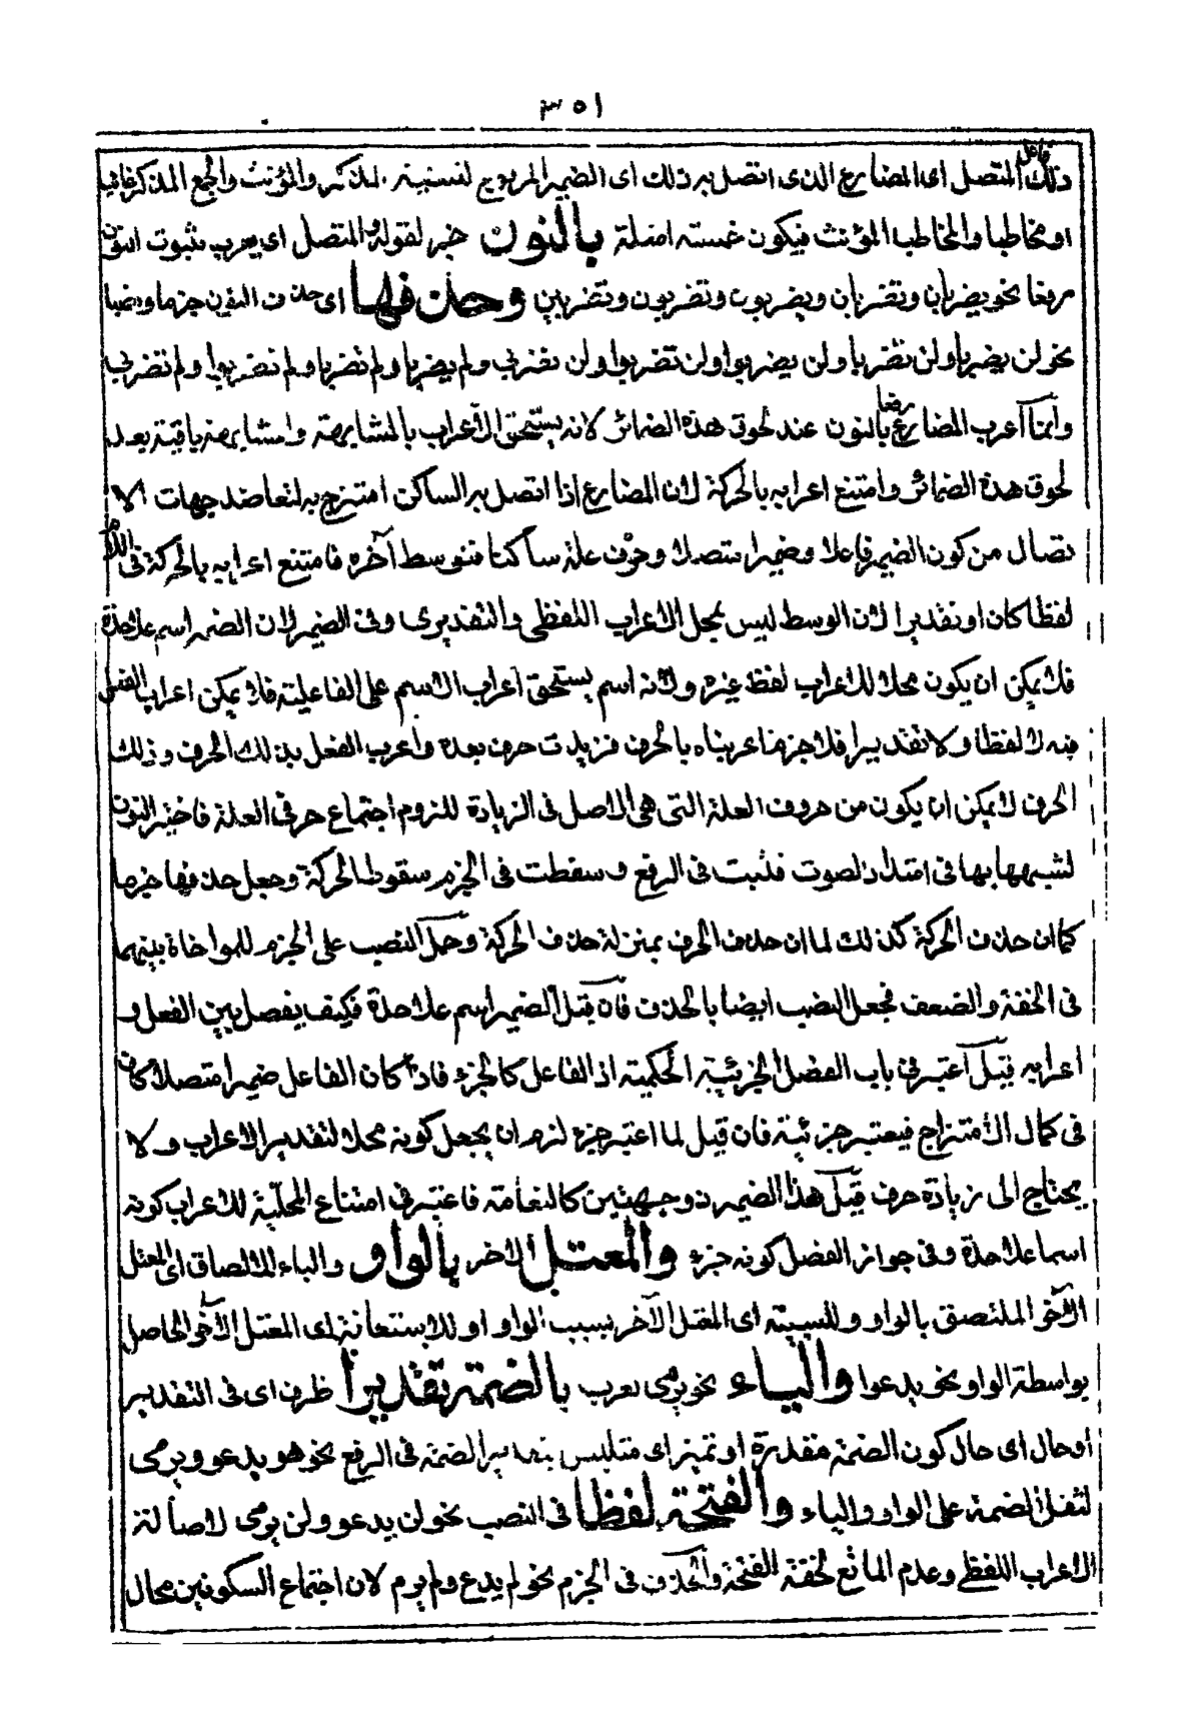 ٣٥١
ذلك فاعل المتصل اى المضارع الذى اتصل به ذلك اى الضمير المرفوع لتثنية المذكر والمؤنث والجمع المذكر غائبا
او مخاطبا والمخاطب المؤنث فيكون خمسة امثلة بالنون خبر لقوله والمتصل اى يعرب بثبوت النون
رفعا نحو يضربان وتضربان ويضربون وتضربون وتضربين وحذفها اى حذف النون جزما ونصبا
نحو لن يضربا ولن تضربا ولن يضربوا ولن تضربوا ولن تضربى ولم يضربا ولم تضربا ولم تضربوا ولم تضربى
وانما اعرب المضارع رفعا بالنون عند لحوق هذه الضمائر لانه يستحق الاعراب بالمشابهة ومشابهته باقية بعد
لحوق هذه الضمائر وامتنع اعرابه بالحركة لان المضارع اذا اتصل به الساكن امتزج به لتعاضد جهات الا
تصال من كون الضمير فاعلا وضميرا متصلا وحرف علة ساكنا فتوسط آخره فامتنع اعرابه بالحركة فى اللام
لفظا كان او تقديرا لان الوسط ليس بمحل الاعراب اللفظى والتقديرى وفى الضمير لان الضمير اسم علاحدة
فلا يمكن ان يكون محلا للاعراب لفظ غيره ولانه اسم يستحق اعراب الاسم على الفاعلية فلا يمكن اعراب الفعل
فيه لا لفظا ولا تقديرا فلا جزم اعربناه بالحرف فزيدت حرف بعده واعرب الفعل بذلك الحرف وذلك
الحرف لا يمكن ان يكون من حروف العلة التى هى الاصل فى الزيادة للزوم اجتماع حرفى العلة فاختير النون
لشبهها بها فى امتداد الصوت فثبت فى الرفع وسقطت فى الجزم سقوط الحركة وجعل حذفها جزما
كما ان حذف الحركة كذلك لما ان حذف الحرف بمنزلة حذف الحركة وحمل النصب على الجزم للمواخاة بينهما
فى الخفة والضعف فجعل النصب ايضا بالحذف فان قيل الضمير اسم علاحدة فكيف يفصل بين الفعل و
اعرابه قيل اعتبر فى باب الفصل الجزئية الحكمية اذ الفاعل كالجزء فاذا كان الفاعل ضميرا متصلا كان
فى كمال الامتزاج فيعتبر جزئية فان قيل لما اعتبر جزء لزم ان يجعل كونه محلا لتقدير الاعراب ولا
يحتاج الى زيادة حرف قيل هذا الضمير ذوجهتين كالنعامة فاعتبر فى امتناع المحلية للاعراب كونه
اسما علاحدة وفى جواز الفصل كونه جزء والمعتل الاخر بالواو والباء للالصاق اى المعتل
الآخر الملتصق بالواو وللسببية اى المعتل الآخر بسبب الواو او للاستعانة اى المعتل الآخر الحاصل
بواسطة الواو نحو يدعوا والياء نحو يرمى يعرب بالضمة تقديرا ظرف اى فى التقدير
او حال اى حال كون الضمة مقدرة او تميز اى متلبس بتقدير الضمة فى الرفع نحو هو يدعو ويرمى
لثقل الضمة على الواو والياء والفتحة لفظا فى النصب نحو لن يدعو ولن يرمى لاصالة
الاعراب اللفظى وعدم المانع لخفة الفتحة والحذف فى الجزم نحو لم يدع ولم يرم لان اجتماع السكونين محال